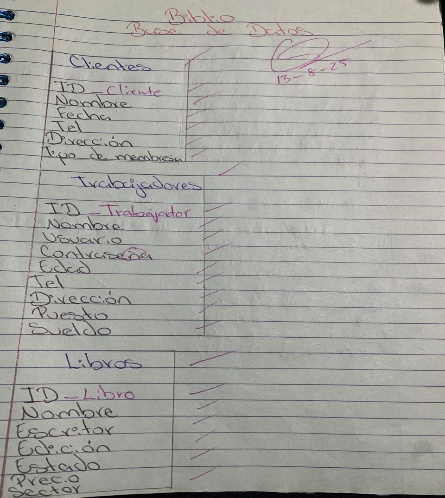 Biblio
Base de Datos
13-8-25
Clientes
ID_Cliente
Nombre
Fecha
Tel
Dirección
Tipo de membresia
Trabajadores
ID_Trabajador
Nombre
Usuario
Contraseña
Edad
Tel
Dirección
Puesto
Sueldo
Libros
ID_Libro
Nombre
Escretor
Edición
Estado
Precio
Sector